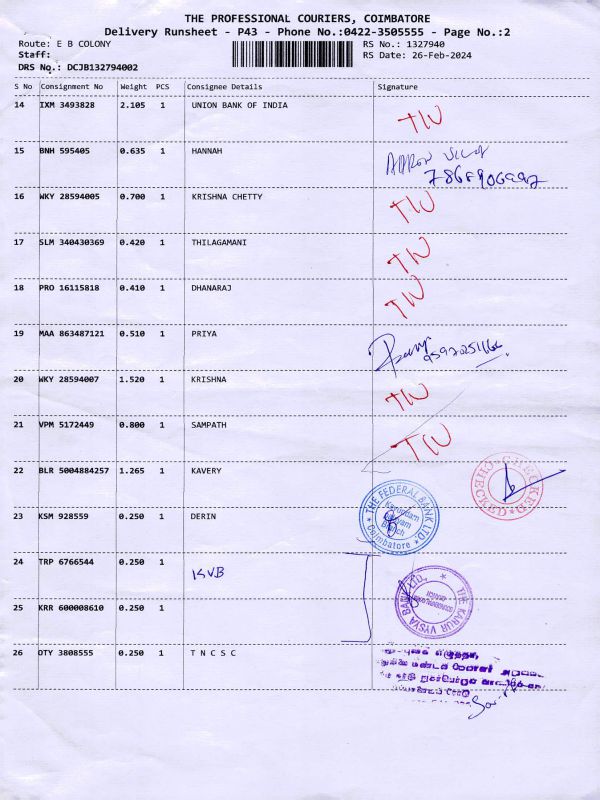 THE PROFESSIONAL COURIERS, COIMBATORE
Delivery Runsheet - P43 - Phone No.:0422-3505555 - Page No.:2
Route: E B COLONY RS No.: 1327940
Staff: RS Date: 26-Feb-2024
DRS No.: DCJB132794002
S No Consignment No Weight PCS Consignee Details Signature
14 IXM 3493828 2.105 1 UNION BANK OF INDIA TW
15 BNH 595405 0.635 1 HANNAH
16 WKY 28594005 0.700 1 KRISHNA CHETTY TW
17 SLM 340430369 0.420 1 THILAGAMANI TW
18 PRO 16115818 0.410 1 DHANARAJ TW
19 MAA 863487121 0.510 1 PRIYA
20 WKY 28594007 1.520 1 KRISHNA TW
21 VPM 5172449 0.800 1 SAMPATH TW
22 BLR 5004884257 1.265 1 KAVERY
CHECKED CHECKED
23 KSM 928559 0.250 1 DERIN
THE FEDERAL BANK LTD.
Branch
Coimbatore
24 TRP 6766544 0.250 1 KVB
THE KARUR VYSYA BANK LTD.
25 KRR 600008610 0.250 1
26 OTY 3808555 0.250 1 T N C S C